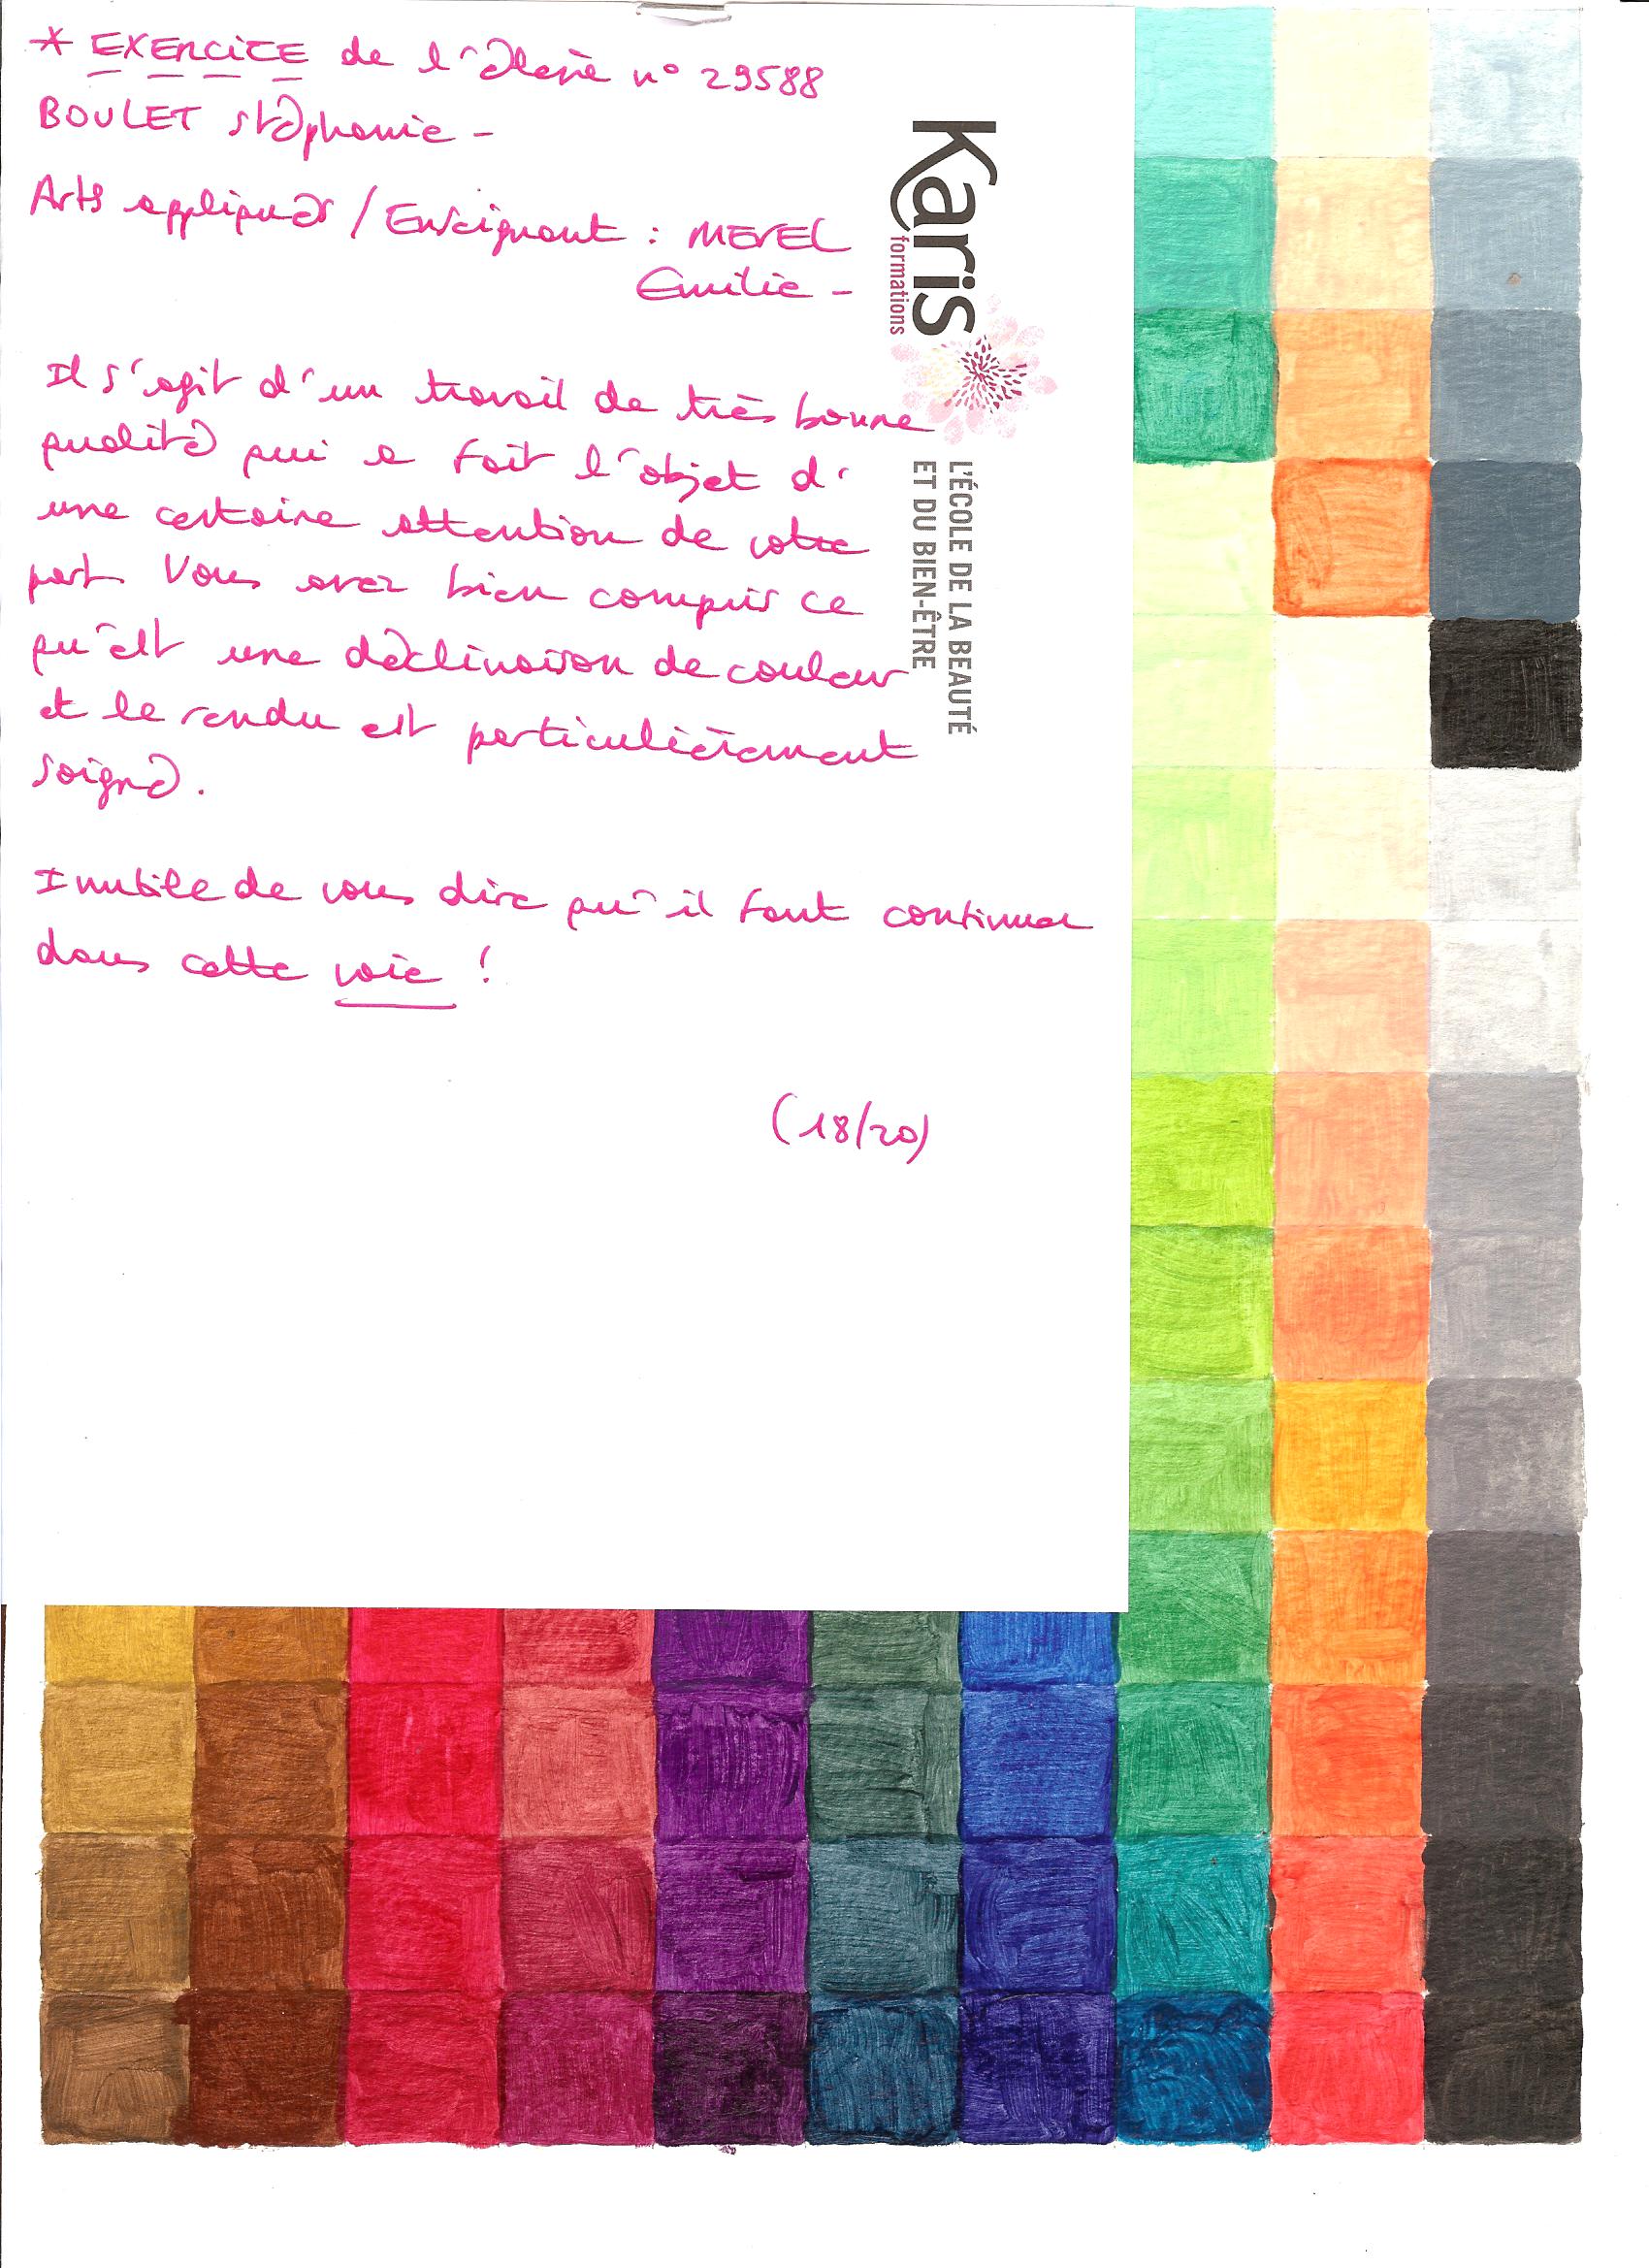 * EXERCICE de l'élève n° 29588
BOULET stéphanie -
Arts appliqués / Enseignant : MEREL
Emilie -
Il s'agit d'un travail de très bonne
qualité qui a fait l'objet d'
une certaine attention de votre
part. Vous avez bien compris ce
qu'est une déclinaison de couleur
et le rendu est particulièrement
soigné.
Inutile de vous dire qu'il faut continuer
dans cette voie !
(18/20)
Karis
formations
L'ÉCOLE DE LA BEAUTÉ
ET DU BIEN-ÊTRE